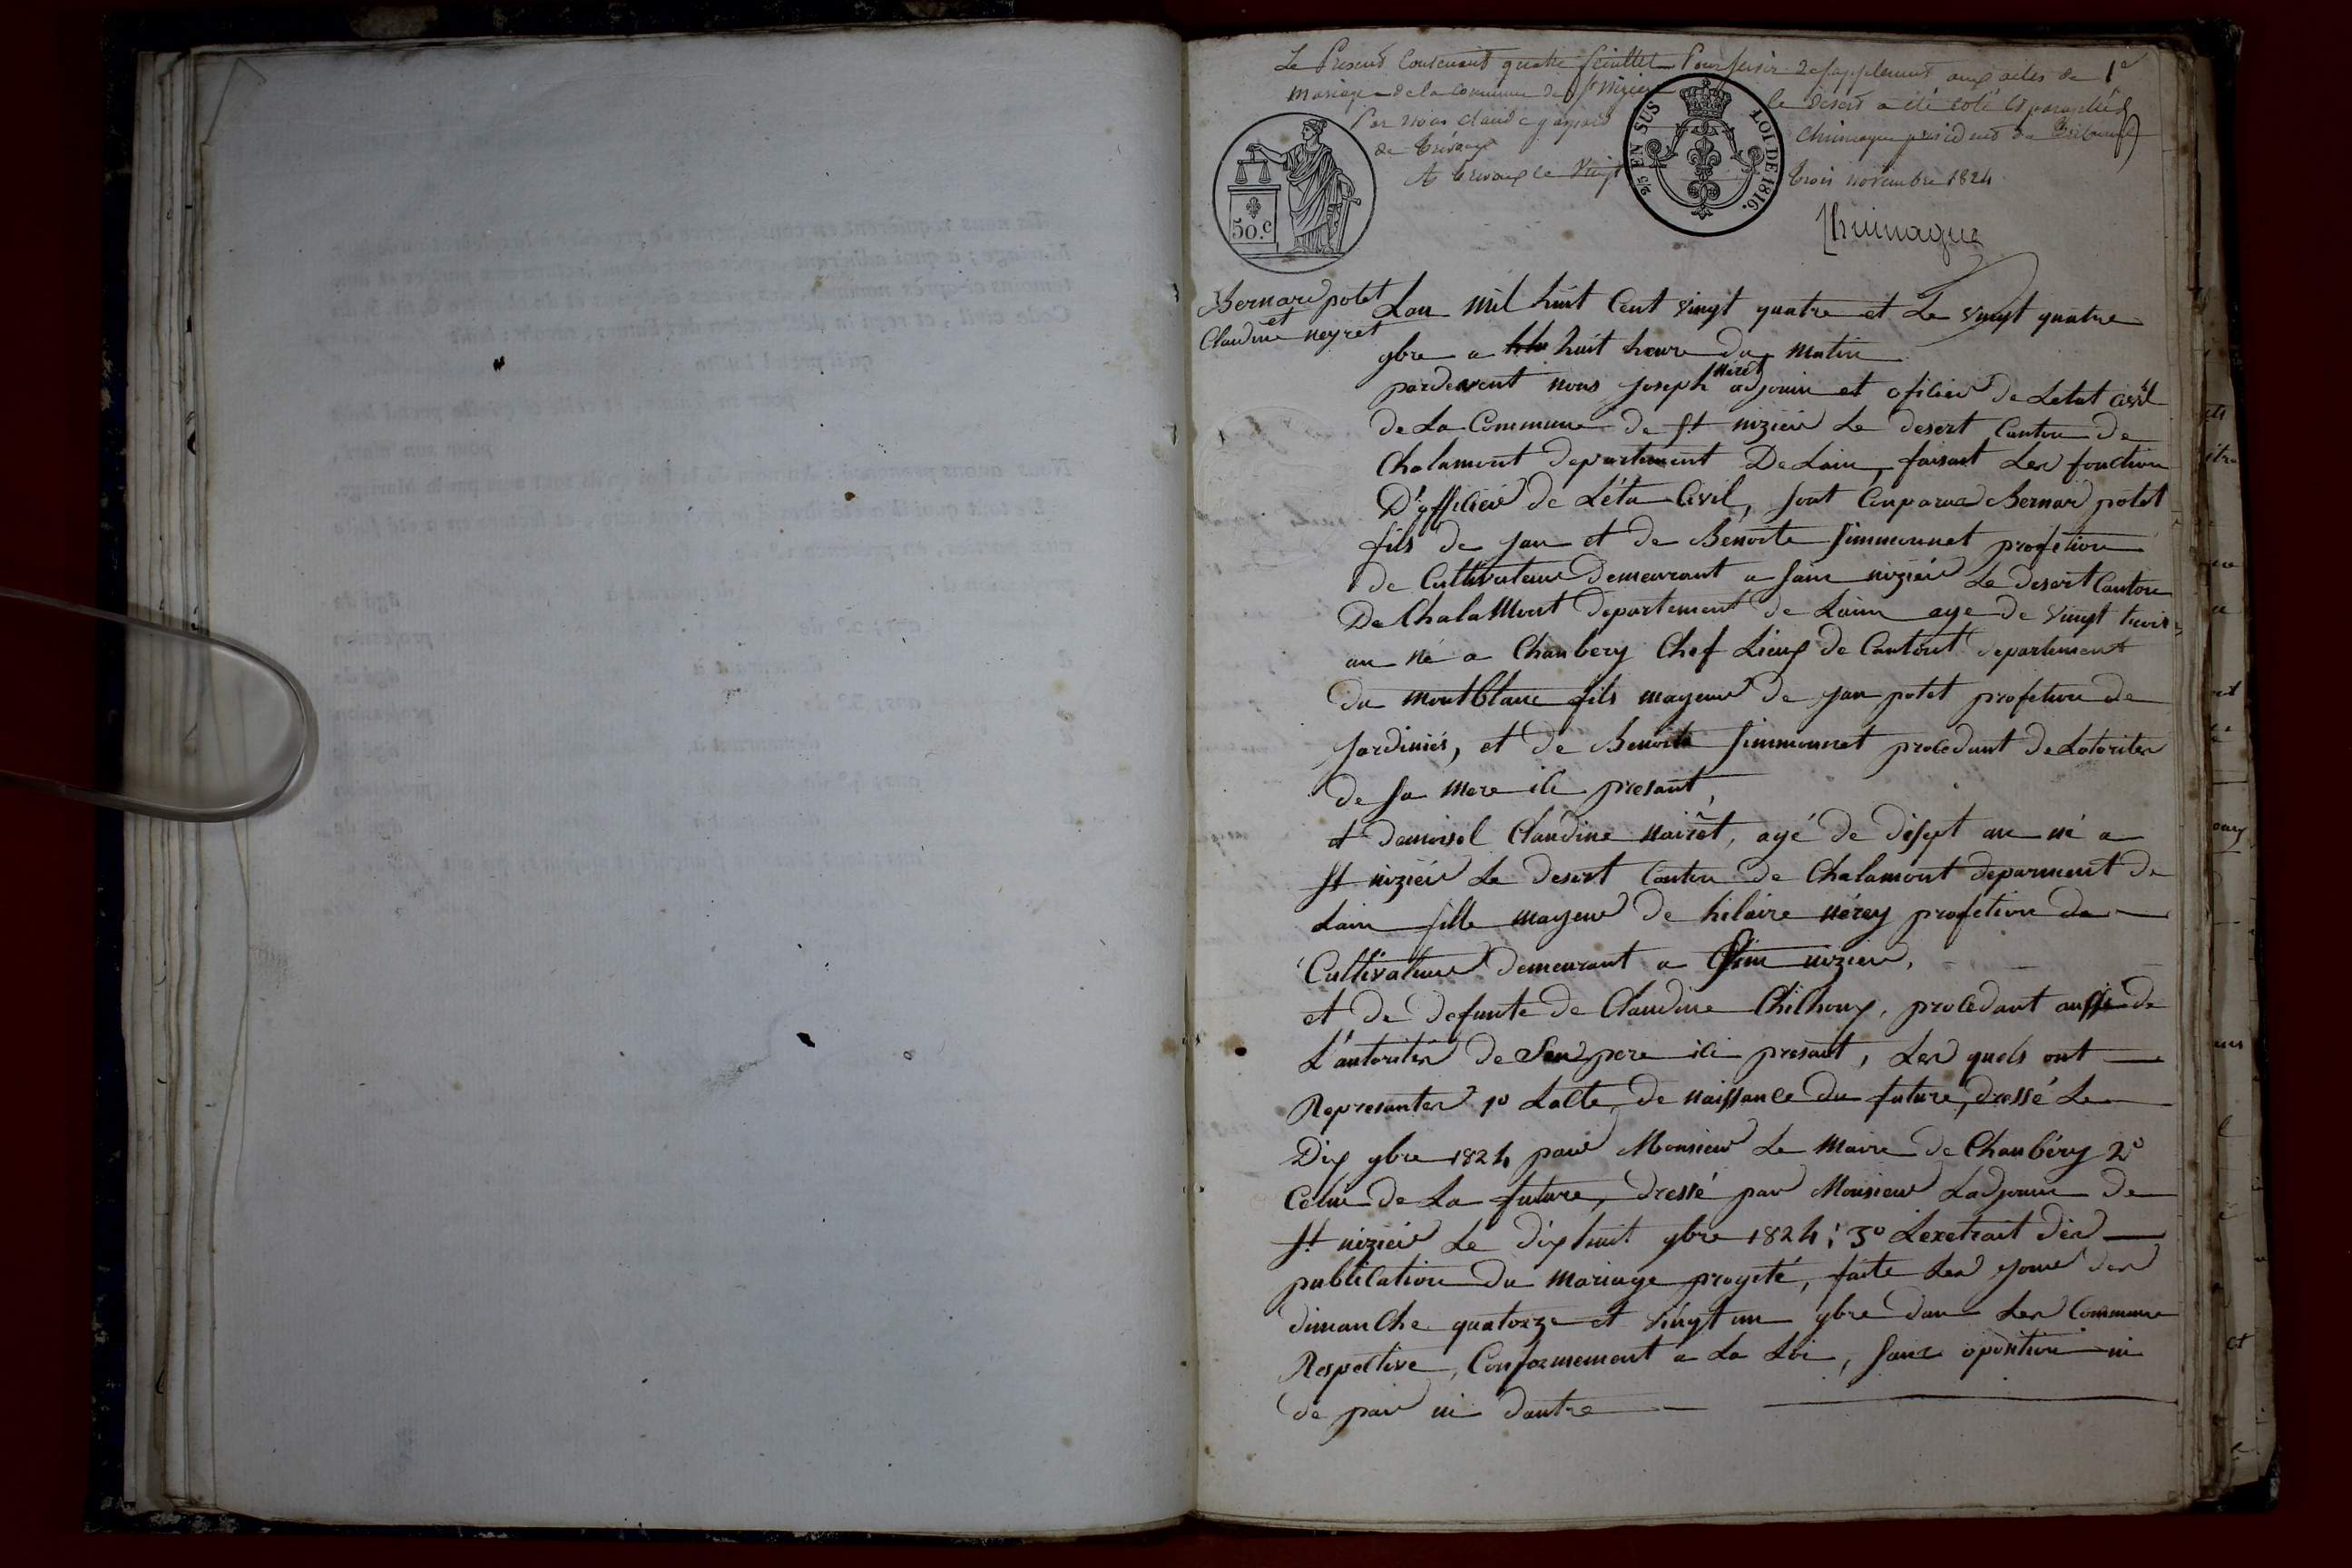 Le Present Contenant quatre feuillet Pour servir de supplement aux actes de 1er
mariage de la commune de St Nizier le desert a été coté et paraphé
Par nous Claude gaspard Chuinague president du Tribunal
de trévoux
A trevoux le Vingt trois novembre 1824
Chuinague
2/5 EN SUS LOI DE 1816.
50.c
Bernard potet
et
Claudine neyret
Lan mil huit Cent vingt quatre et Le vingt quatre
9bre a huit heure du matin
pardevent nous joseph Niret adjouin et oficier de Letat Civil
de La Commune de St nizier Le desert Canton de
Chalamont departement De Lain, faisant Les fonction
D'officier de L'éta Civil, sont Conparue Bernard potet
fils de jan et de Benoite Simmonnet profetion
de Cultivateur Demeurant a sain nizier Le desert Canton
De ChalaMont departement de Lainn age de vingt trois
an né a Chanbery Chef Lieux de Cantont departement
du montblanc fils mageur de jan potet profetion de
jardiniés, et de Benoite Simmonnet procedant de Lotoriter
de sa mere ici presant,
et demoisel Claudine nairêt, agé de diset an né a
St nizier Le desert Canton de Chalamont deparment de
Lain fille mageur de hilaire nérey profetion de
Cultivateur demeurant a Sain nizier,
et de defunte de Claudine Chilhoux, procedant aussi de
L'autoriter de Son pere ici presant, Les quels ont
Represanter 1o Lacte de naissance du future, dressé Le
Dix 9bre 1824 par Monsieur Le Maire de Chanbéry 2o
Celui de La future, dressé par Monsieur Ladjouin de
St nizier Le dixhuit 9bre 1824; 3o Lexetrait des
publication du Mariage progeté, faite Les jour des
dimanche quatorze et vingt un 9bre dan Les Commune
Respective, Conformement a La Loi, sans oposition ni
de par ni dautre